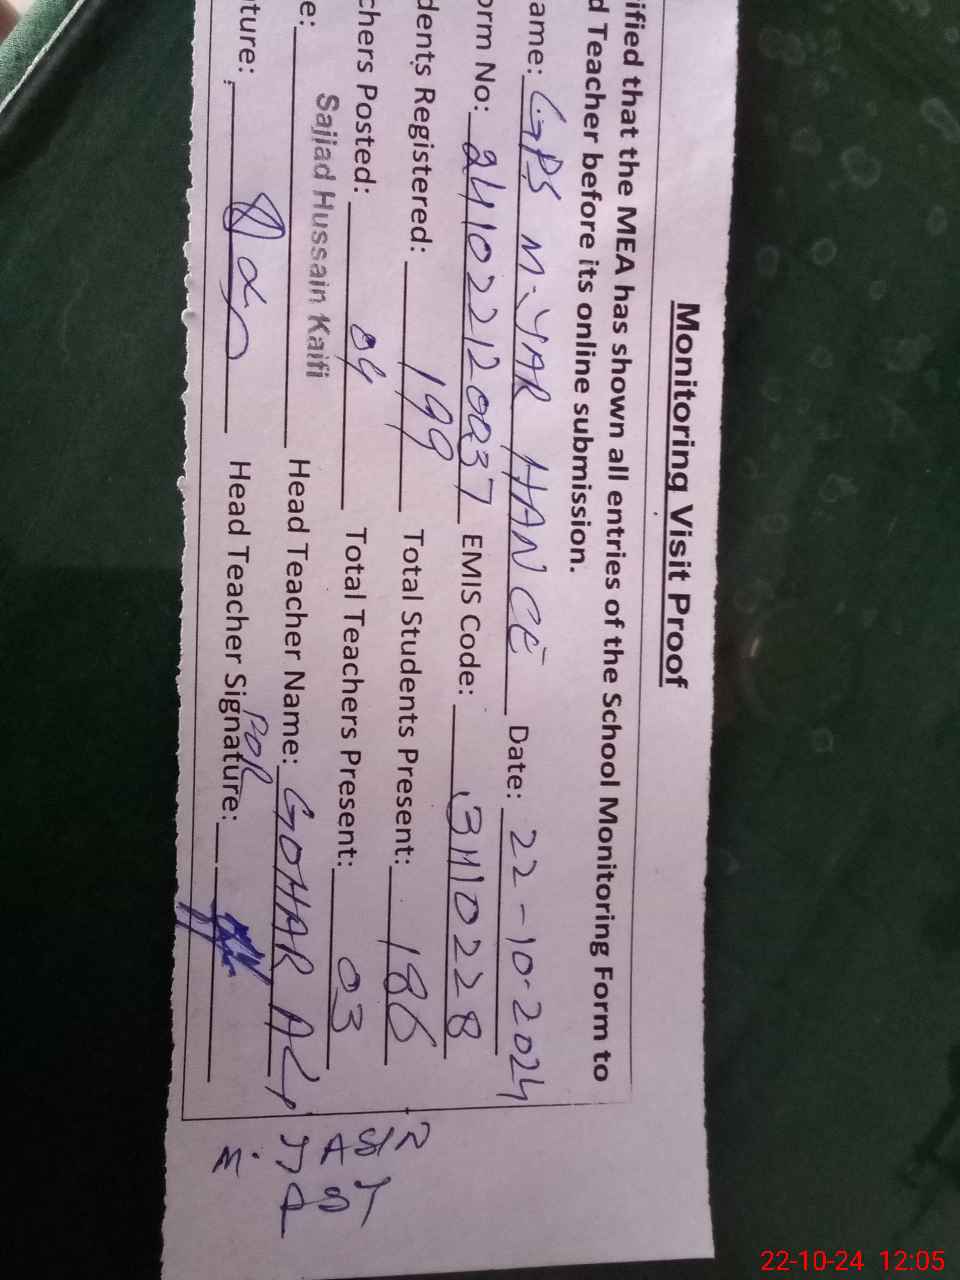 Monitoring Visit Proof
ified that the MEA has shown all entries of the School Monitoring Form to
d Teacher before its online submission.
ame: GPS M-YAR HANCE Date: 22-10-2024
orm No: 241022120037 EMIS Code: 31110228
dents Registered: 199 Total Students Present: 186
chers Posted: 04 Total Teachers Present: 03
e: Sajjad Hussain Kaifi Head Teacher Name: GOHAR ALI
ture: Head Teacher Signature:
22-10-24 12:05